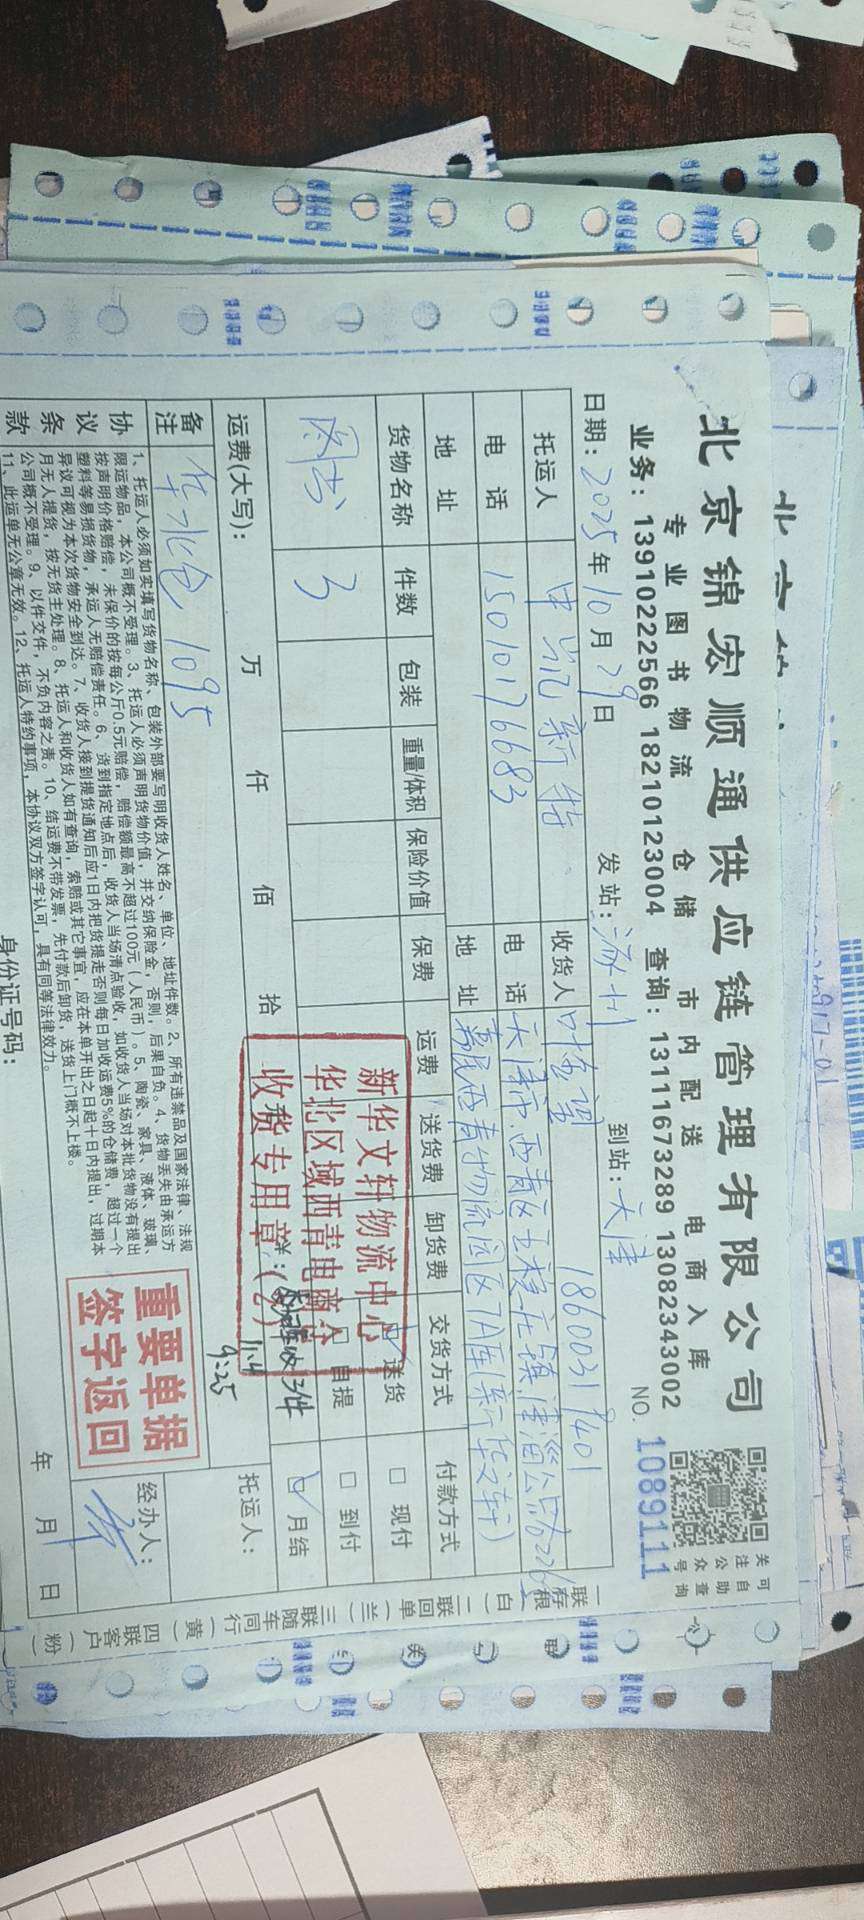 北京锦宏顺通供应链管理有限公司
专业图书物流 仓储 市内配送 电商入库
业务：13910222566 18210123004 查询：13111673289 13082343002
关注公众号
可自助查询
NO. 1089111
日期：2025年10月29日 发站：涿州 到站：天津
托运人 中凯新特 收货人 18600319401
电话 15010176683 电话 天津市西青区王稳庄镇津淄公路226号
地址 地址 嘉民西青物流园区7A库(新华文轩)
货物名称 件数 包装 重量/体积 保险价值 保费 运费 送货费 卸货费 交货方式 付款方式
图书 3
送货 □现付
□自提 □到付
月结
运费(大写)： 万 仟 佰 拾
新华文轩物流中心
华北区域西青电商仓
收货专用章
实收3件
11.4
9:25
托运人：
备注 华水仓 1095
经办人：
协议条款
1、托运人必须如实填写货物名称、包装外部要写明收货人姓名、单位、地址件数。2、所有违禁品及国家法律、法规
限运物品，本公司概不受理。3、托运人必须声明货物价值，并交纳保险金，否则，后果自负。4、货物丢失由承运方
按声明价格赔偿，未保价的按每公斤0.5元赔偿，赔偿额最高不超过100元（人民币）。5、陶瓷、家具、液体、玻璃、
塑料等易损货物，承运人无赔偿责任。6、货到指定地点后，收货人当场清点验收，如收货人当场对本批货物没有提出
异议可视为本次货物安全到达。7、收货人接到提货通知后应1日内把货提走否则每日加收运费5%的仓储费，超过一个
月无人提货，按无货主处理。8、托运人和收货人如有查询，索赔或其它事宜，应在本单开出之日起十日内提出，过期本
公司概不受理。9、以件交件，不负内容之责。10、结运费不带发票，先付款后卸货，送货上门概不上楼。
11、此运单无公章无效。12、托运人特约事项，本协议双方签字认可，具有同等法律效力。
重要单据
签字返回
身份证号码：
年 月 日
一联存根(白) 二联回单(兰) 三联随车同行(黄) 四联客户(粉)